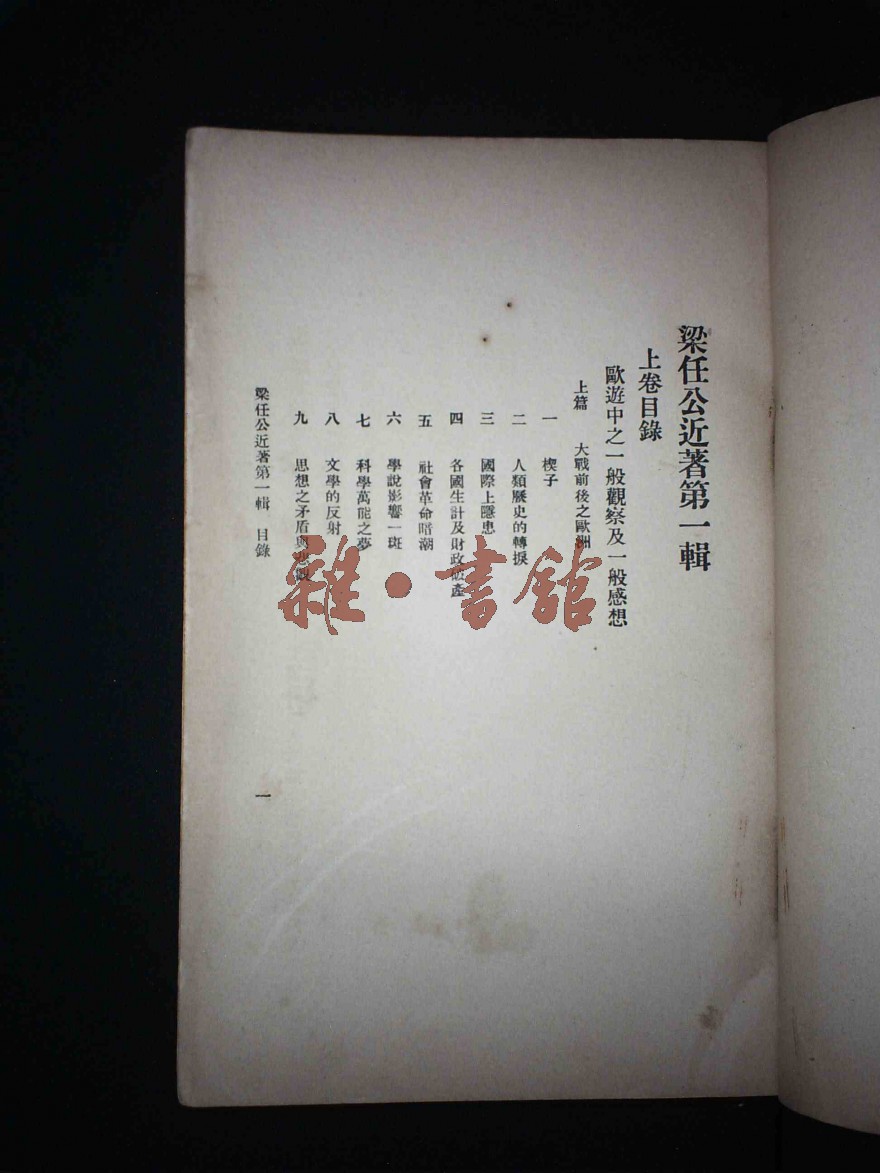 梁任公近著第一輯
上卷目錄
歐遊中之一般觀察及一般感想
上篇 大戰前後之歐洲
一 楔子
二 人類歷史的轉捩
三 國際上隱患
四 各國生計及財政破產
五 社會革命暗潮
六 學說影響一斑
七 科學萬能之夢
八 文學的反射
九 思想之矛盾與悲觀
梁任公近著第一輯 目錄
一
雜·書館